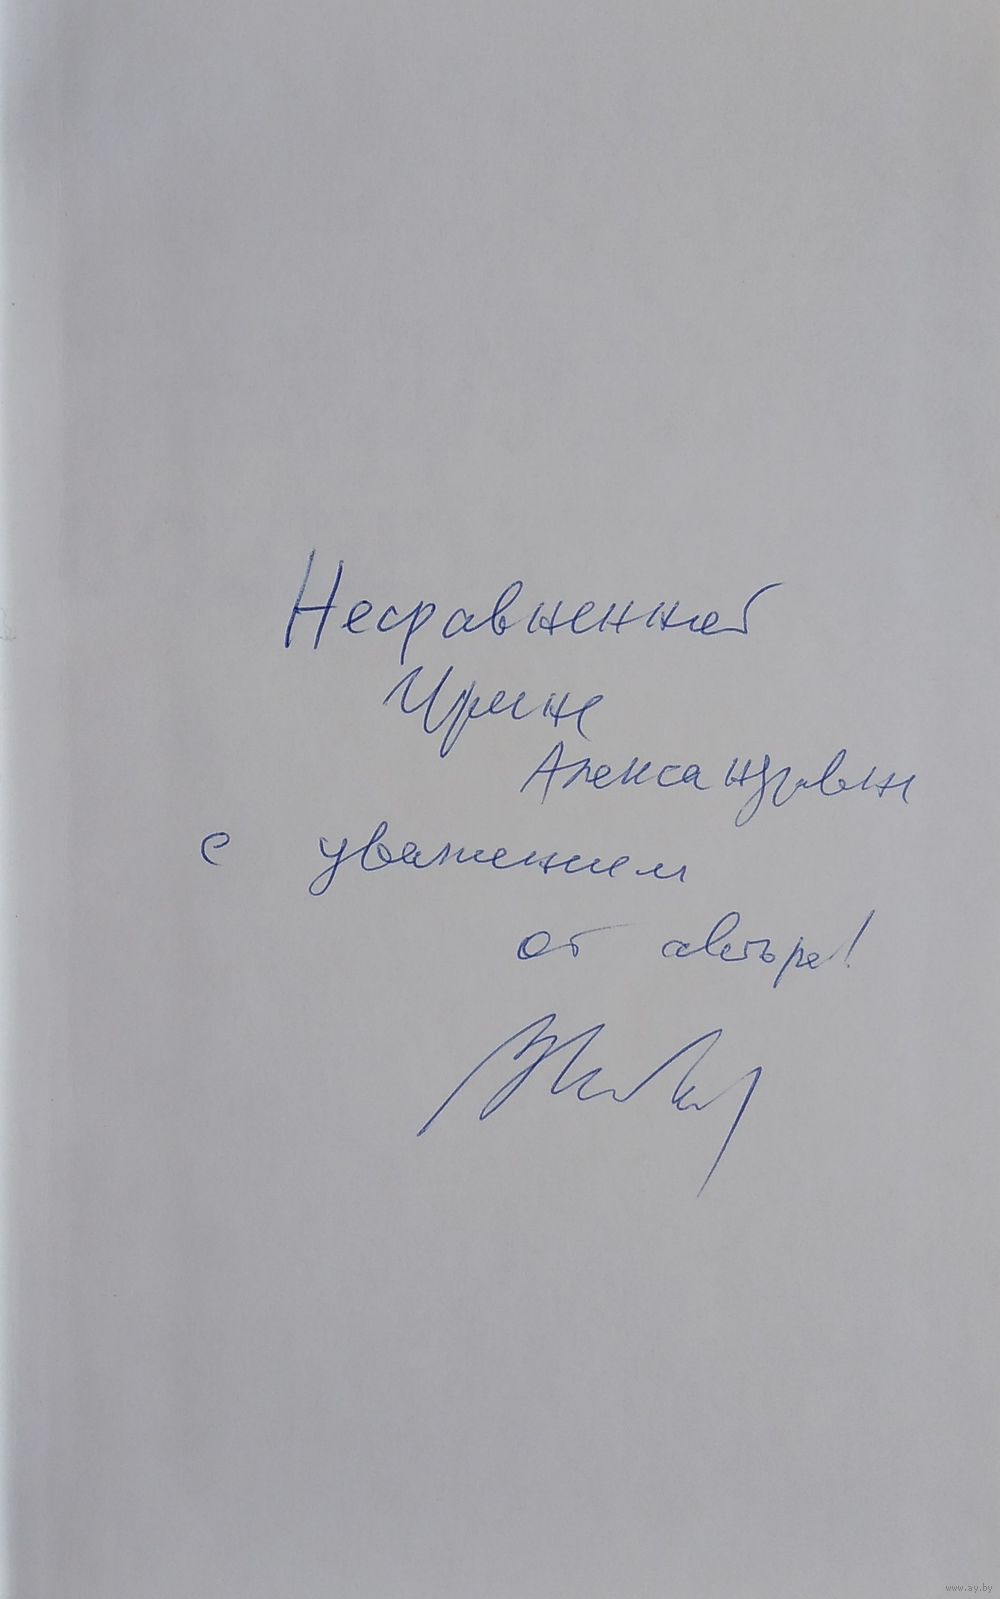 Несравненной
Ирине
Александровне
с уважением
от автора!
www.ay.by